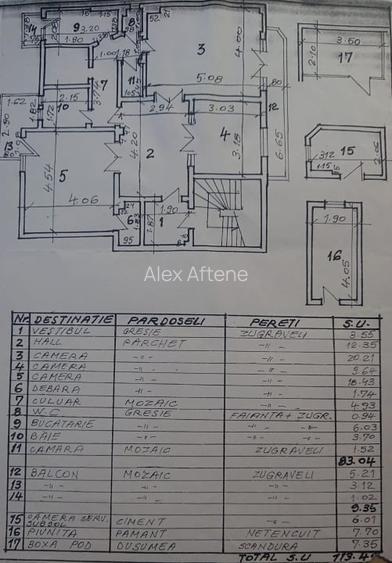 14
9 3.20
1.80
8
52
3
5.08
4.00
80
3.50
2.10
17
1.00
1.18
11
7
10
2.15
1.72
1.62
2.90
13
2.94
3.03
4
3.18
12
6.65
2
4.20
5
4.54
4.06
6
95
1.90
1
15
312
1.90
16
4.05
Alex Aftene
Nr. DESTINATIE PARDOSELI PERETI S.U.
1 VESTIBUL GRESIE ZUGRAVELI 3.55
2 HALL PARCHET -"- 12.35
3 CAMERA -"- -"- 20.21
4 CAMERA -"- -"- 9.64
5 CAMERA -"- -"- 18.43
6 DEBARA -"- -"- 1.74
7 CULUAR MOZAIC -"- 4.93
8 W.C. GRESIE FAIANTA + ZUGR. 0.94
9 BUCATARIE -"- -"- 6.03
10 BAIE -"- -"- 3.70
11 CAMARA MOZAIC ZUGRAVELI 1.52
83.04
12 BALCON MOZAIC ZUGRAVELI 5.21
13 -"- -"- -"- 3.12
14 -"- -"- -"- 1.02
9.35
15 CAMERA SERV. SUBSOL CIMENT -"- 6.01
16 PIVNITA PAMANT NETENCUIT 7.70
17 BOXA POD DUSUMEA SCANDURA 7.35
TOTAL S.U. 113.45